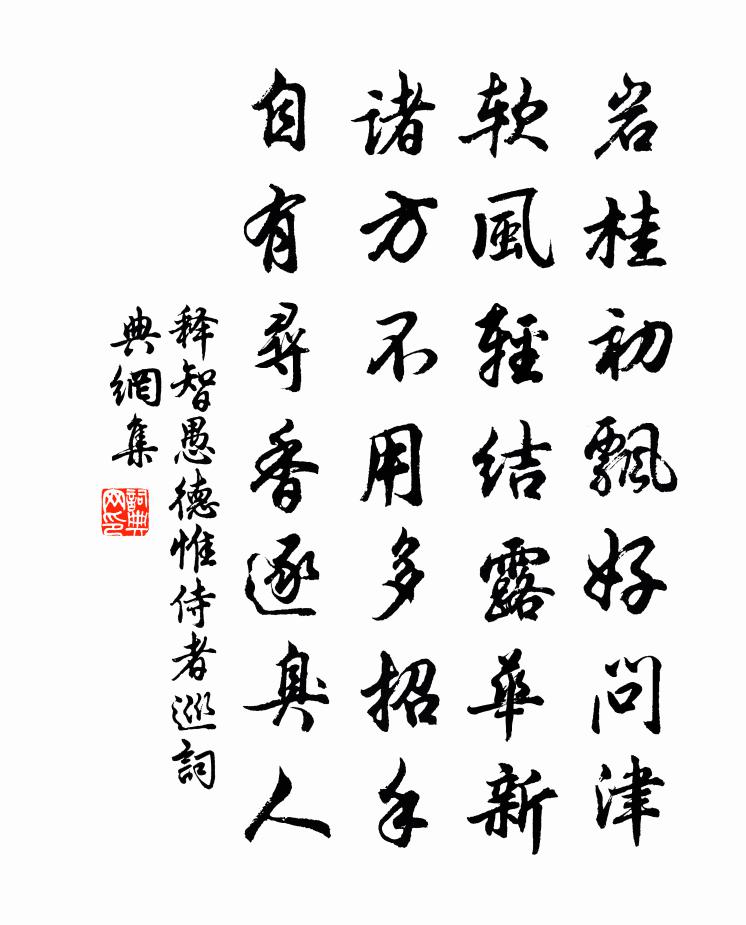 岩桂初飄好問津
软風輕結露華新
诸方不用多招手
自有尋香逐臭人
释智愚德惟侍者巡詞
典網集
詞典
网印